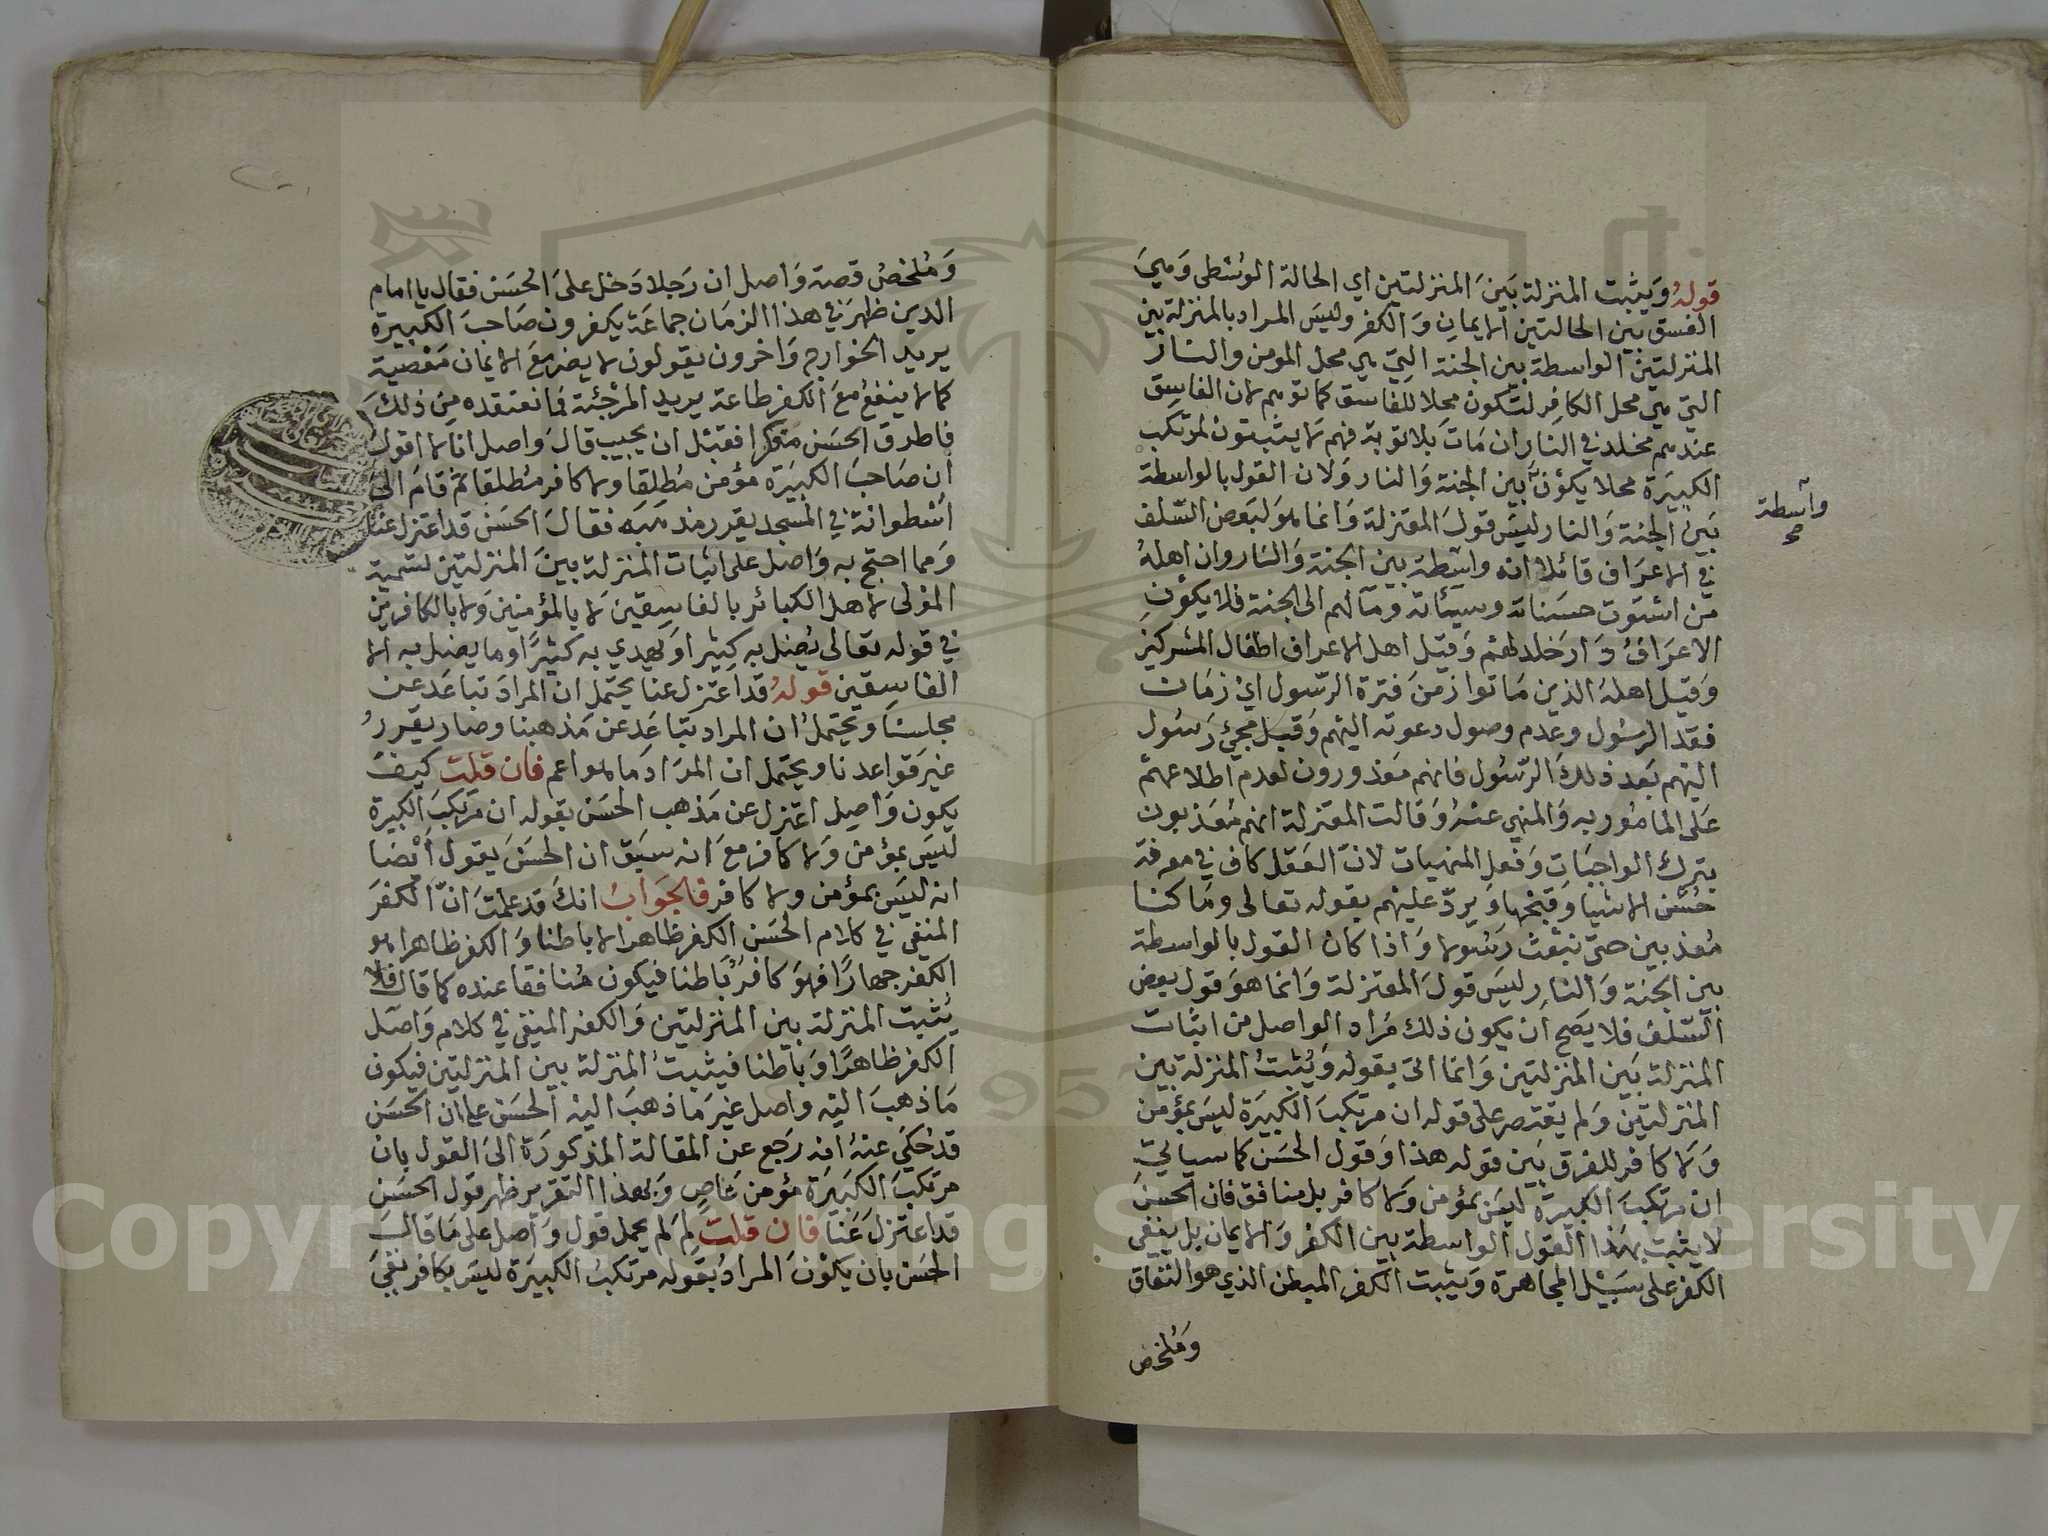 قوله ويثبت المنزلة بين المنزلتين اي الحالة الوسطى وهي
الفسق بين الحالتين الايمان والكفر وليس المراد بالمنزلة بين
المنزلتين الواسطة بين الجنة التي هي محل المومن والنار
التي هي محل الكافر لتكون محلا للفاسق كما توهم لان الفاسق
عندهم مخلد في النار ان مات بلا توبة فهم لا يثبتون لمرتكب
الكبيرة محلا يكون بين الجنة والنار ولان القول بالواسطة
بين الجنة والنار ليس قول المعتزلة وانما هو لبعض السلف
في الاعراف قائلا انه واسطة بين الجنة والنار وان اهله
من استوت حسناته وسيئاته ومآلهم الى الجنة فلا يكون
الاعراف دار خلد لهم وقيل اهل الاعراف اطفال المشركين
وقيل اهله الذين ماتوا زمن فترة الرسول اي زمان
فقد الرسول وعدم وصول دعوته اليهم وقبل مجئ رسول
اليهم بعد ذلك الرسول فانهم معذورون لعدم اطلاعهم
على المامور به والمنهي عنه وقالت المعتزلة انهم معذبون
بترك الواجبات وفعل المنهيات لان العقل كاف في معرفة
حسن الاشيا وقبحها ويرد عليهم بقوله تعالى وما كنا
معذبين حتى نبعث رسولا واذا كان القول بالواسطة
بين الجنة والنار ليس قول المعتزلة وانما هو قول بعض
السلف فلا يصح ان يكون ذلك مراد الواصل من اثبات
المنزلة بين المنزلتين وانما اتى بقوله ويثبت المنزلة بين
المنزلتين ولم يقتصر على قوله ان مرتكب الكبيرة ليس بمؤمن
ولا كافر للفرق بين قوله هذا وقول الحسن كما سياتي
ان مرتكب الكبيرة ليس بمؤمن ولا كافر بل منافق فان الحسن
لا يثبت بهذا القول الواسطة بين الكفر والايمان بل ينفي
الكفر على سبيل المجاهرة ويثبت الكفر المبطن الذي هو النفاق
وملخص
واسطة
صح
وملخص قصة واصل ان رجلا دخل على الحسن فقال يا امام
الدين ظهر في هذا الزمان جماعة يكفرون صاحب الكبيرة
يريد الخوارج واخرون يقولون لا يضر مع الايمان معصية
كما لا ينفع مع الكفر طاعة يريد المرجئة فما نعتقده من ذلك
فاطرق الحسن متفكرا فقبل ان يجيب قال واصل انا لا اقول
ان صاحب الكبيرة مؤمن مطلقا ولا كافر مطلقا ثم قام الى
اسطوانة في المسجد يقرر مذهبه فقال الحسن قد اعتزل عنا
ومما احتج به واصل على اثبات المنزلة بين المنزلتين تسمية
المولى لاهل الكبائر بالفاسقين لا بالمؤمنين ولا بالكافرين
في قوله تعالى يضل به كثيرا ويهدي به كثيرا وما يضل به الا
الفاسقين قوله قد اعتزل عنا يحتمل ان المراد تباعد عن
مجلسنا ويحتمل ان المراد تباعد عن مذهبنا وصار يقرر
غير قواعدنا ويحتمل ان المراد ما هو اعم فان قلت كيف
يكون واصل اعتزل عن مذهب الحسن بقوله ان مرتكب الكبيرة
ليس بمؤمن ولا كافر مع انه سبق ان الحسن يقول ايضا
انه ليس بمؤمن ولا كافر فالجواب انك قد علمت ان الكفر
المنفي في كلام الحسن الكفر ظاهرا لا باطنا والكفر ظاهرا هو
الكفر جهارا فهو كافر باطنا فيكون منافقا عنده كما قال فلا
يثبت المنزلة بين المنزلتين والكفر المنفي في كلام واصل
الكفر ظاهرا وباطنا فيثبت المنزلة بين المنزلتين فيكون
ما ذهب اليه واصل غير ما ذهب اليه الحسن على ان الحسن
قد حكي عنه انه رجع عن المقالة المذكورة الى القول بان
مرتكب الكبيرة مؤمن عاص وبهذا التقرير ظهر قول الحسن
قد اعتزل عنا فان قلت لم لم يحمل قول واصل على ما قال
الحسن بان يكون المراد بقوله مرتكب الكبيرة ليس بكافر نفي
Copyright © King Saud University